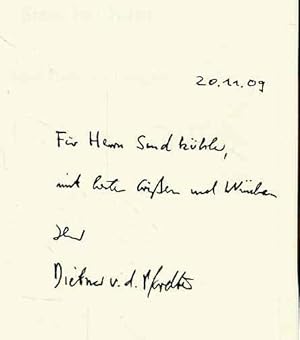 20.11.09
Für Herrn Sandkühler,
mit besten Grüßen und Wünschen
Ihr
Dietmar v. d. Pfordten